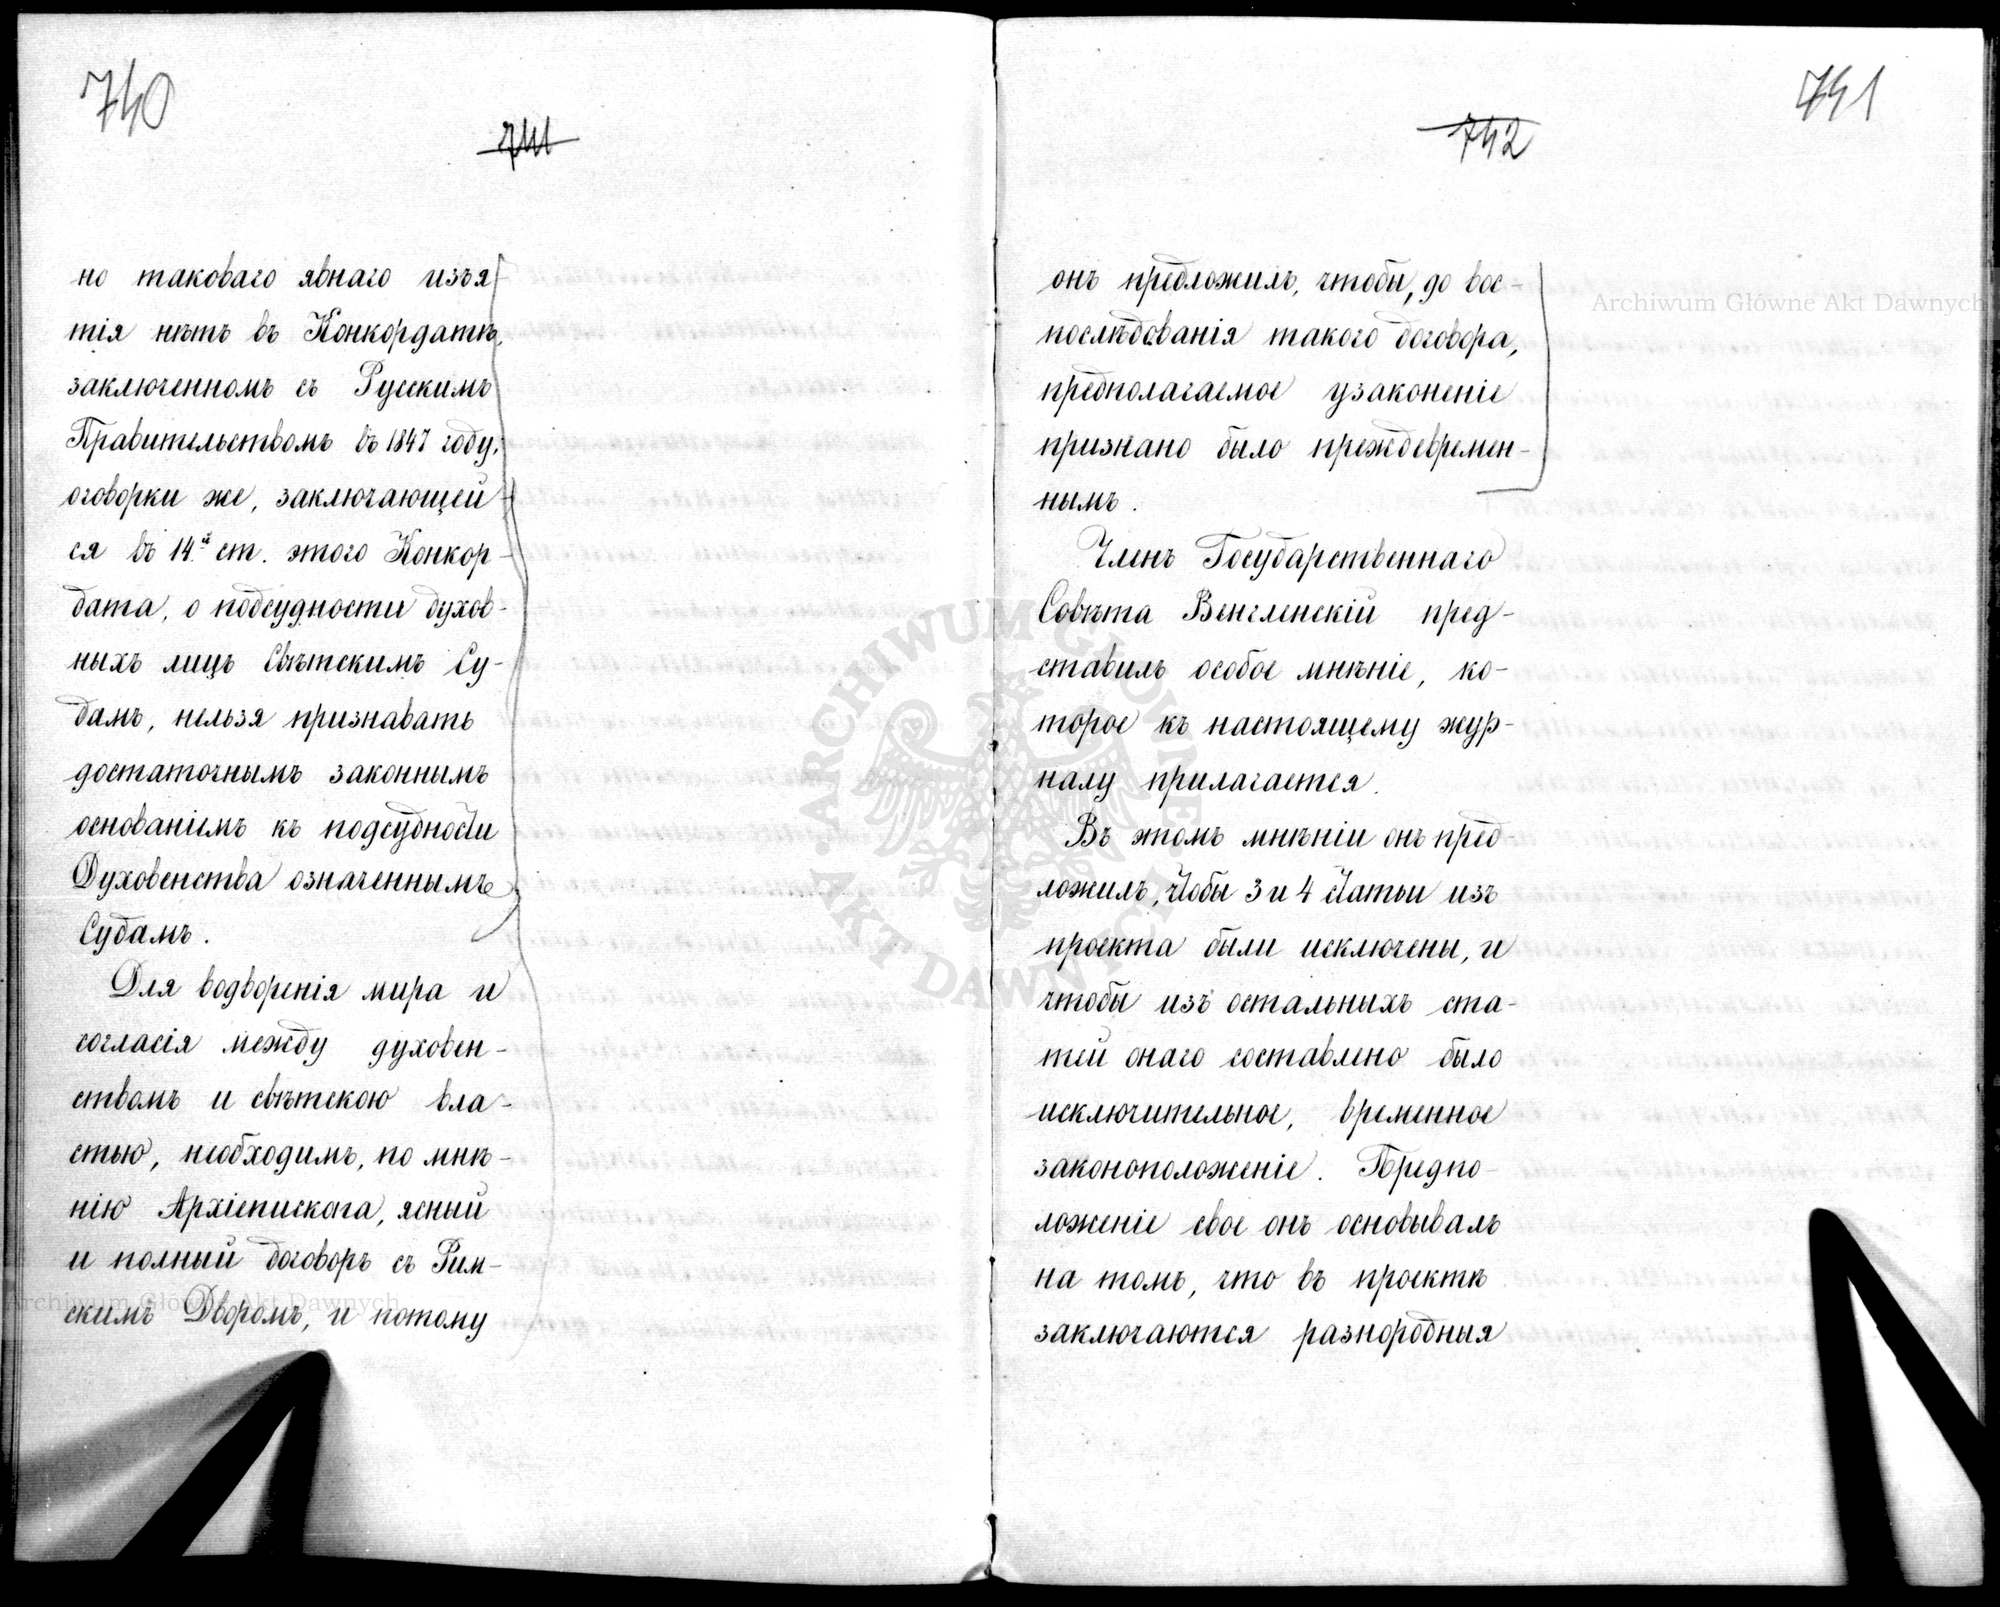 740
741
но таковаго явнаго изъя-
тія нѣтъ въ Конкордатѣ,
заключенномъ съ Русскимъ
Правительствомъ въ 1847 году;
оговорки же, заключающей-
ся въ 14й ст. этого Конкор-
дата, о подсудности духов-
ныхъ лицъ Свѣтскимъ Су-
дамъ, нельзя признавать
достаточнымъ законнымъ
основаніемъ къ подсудности
Духовенства означеннымъ
Судамъ.
Для водворенія мира и
согласія между духовен-
ствомъ и свѣтскою вла-
стью, необходимъ, по мнѣ-
нію Архіепископа, ясный
и полный договоръ съ Рим-
скимъ Дворомъ, и потому
Archiwum Główne Akt Dawnych
741
742
онъ предложилъ, чтобы, до вос-
послѣдованія такого договора,
предполагаемое узаконеніе
признано было преждевремен-
нымъ.
Членъ Государственнаго
Совѣта Венгленскій пред-
ставилъ особое мнѣніе, ко-
торое къ настоящему жур-
налу прилагается.
Въ этомъ мнѣніи онъ пред
ложилъ, чтобы 3 и 4 статьи изъ
проекта были исключены, и
чтобы изъ остальныхъ ста-
тей онаго составлено было
исключительное, временное
законоположеніе. Предпо-
ложеніе свое онъ основывалъ
на томъ, что въ проектѣ
заключаются разнородныя
Archiwum Główne Akt Dawnych
ARCHIWUM GŁÓWNE AKT DAWNYCH